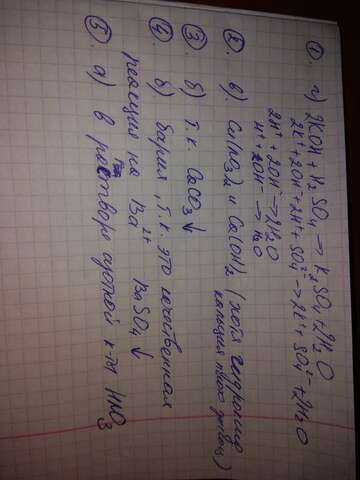 1. г) 2KOH + H₂SO₄ → K₂SO₄ + 2H₂O
2K⁺ + 2OH⁻ + 2H⁺ + SO₄²⁻ → 2K⁺ + SO₄²⁻ + 2H₂O
2H⁺ + 2OH⁻ → 2H₂O
H⁺ + OH⁻ → H₂O
2. в) Cu(NO₃)₂ и Ca(OH)₂ (хотя гидроксид
кальция мало )
3. б) т.к. CaCO₃↓
4. б) бария, т.к. это качественная
реакция на Ba²⁺ BaSO₄↓
5. а) в растворе азотной к-ты HNO₃